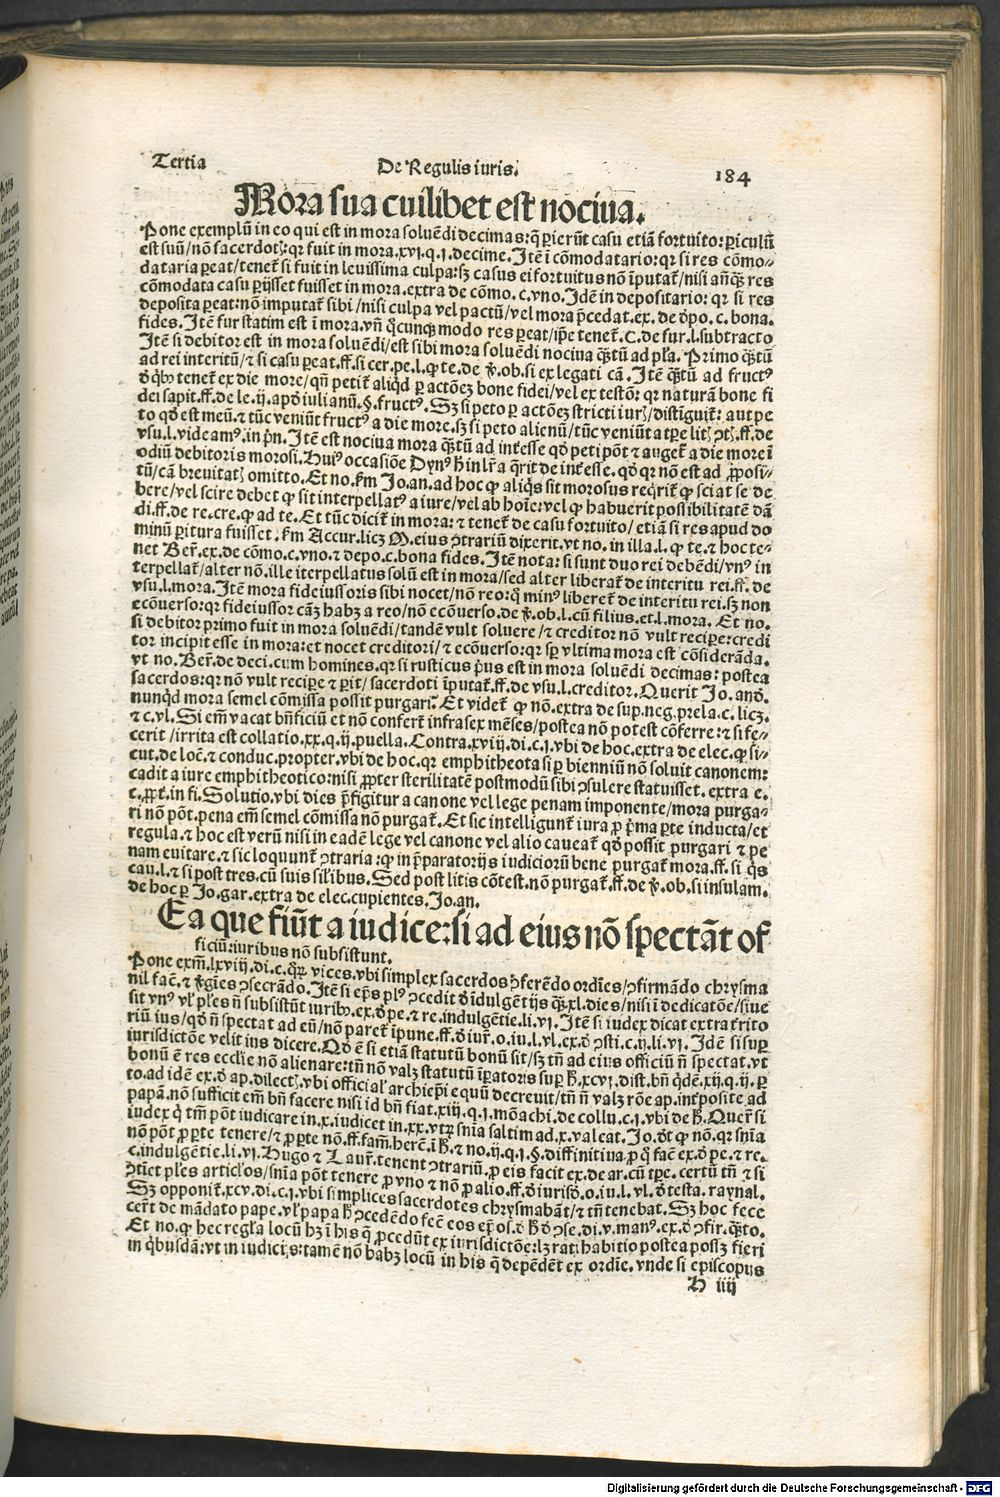 Tertia De Regulis iuris. 184
Mora sua cuilibet est nociua.
Pone exemplũ in eo qui est in mora soluẽdi decimas: q̃ perierũt casu etiã fortuito: periculũ
est suũ/nõ sacerdotꝭ: qꝛ fuit in mora.xvj.q.j.decime. Jtẽ ĩ cõmodatario: qꝛ si res cõmo-
dataria pereat/tenet̃ si fuit in leuissima culpa: sꝫ casus ei fortuitus nõ ĩputat̃/nisi añq̃ꝫ res
cõmodata casu perijsset fuisset in mora.extra de cõmo.c.vno. Jdẽ in depositario: qꝛ si res
deposita pereat: nõ imputat̃ sibi/nisi culpa vel pactũ/vel mora p̃cedat.ex.de ðpo.c.bona.
fides. Jtẽ fur statim est ĩ mora.vñ q̃cunqꝫ modo res pereat/ip̃e tenet̃.C.de fur.l.subtracto
Jtẽ si debitor est in mora soluẽdi/est sibi mora soluẽdi nociua q̃ꝫtũ ad pl̃a. Primo q̃ꝫtũ
ad rei interitũ/⁊ si casu pereat.ff.si cer.pe.l.ꝙ te.de ꝟ.ob.si ex legati cã. Jtẽ q̃ꝫtũ ad fructꝰ
ð q̃bꝰ tenet̃ ex die more/qñ petit̃ aliq̃d per actõeꝫ bone fidei/vel ex testõ: qꝛ naturã bone fi
dei sapit.ff.de le.ij.apð iulianũ.§.fructꝰ. Sꝫ si peto per actõeꝫ stricti iurꝭ/distĩguit̃: aut pe
to qð est meũ.⁊ tũc veniũt fructꝰ a die more.sꝫ si peto alienũ/tũc veniũt a tp̃e litꝭ ↄtꝭ.ff.de
vsu.l.videamꝰ.in p̃n. Jtẽ est nociua mora q̃ꝫtũ ad int̃esse qð peti põt ⁊ auget̃ a die more ĩ
odiũ debitoris morosi. Huiꝰ occasiõe Dynꝰ h̃ in lr̃a q̃rit de int̃esse.qð qꝛ nõ est ad ꝓposi-
tũ/cã breuitatꝭ omitto. Et no.fm̃ Jo.an.ad hoc ꝙ aliq̃s sit morosus reqrit̃ ꝙ sciat se de
bere/vel scire debet ꝙ sit interpellatꝰ a iure/vel ab hoĩe: vel ꝙ habuerit possibilitatẽ dã
di.ff.de re.cre.ꝙ ad te. Et tũc dicit̃ in mora: ⁊ tenet̃ de casu fortuito/etiã si res apud do
minũ peritura fuisset.fm̃ Accur.licꝫ M.eius ↄtrariũ dixerit.vt no.in illa.l.ꝙ te.⁊ hoc te-
net Ber̃.ex.de cõmo.c.vno.⁊ depo.c.bona fides. Jtẽ nota: si sunt duo rei debẽdi/vnꝰ in
terpellat̃/alter nõ.ille iterpellatus solũ est in mora/sed alter liberat̃ de interitu rei.ff.de
vsu.l.mora. Jtẽ mora fideiussoris sibi nocet/nõ reo: q̃ minꝰ liberet̃ de interitu rei.sꝫ non
ecõuerso: qꝛ fideiussor cãꝫ habꝫ a reo/nõ ecõuerso.de ꝟ.ob.l.cũ filius.et.l.mora. Et no.
si debitor primo fuit in mora soluẽdi/tandẽ vult soluere/⁊ creditor nõ vult recipere: credi
tor incipit esse in mora: et nocet creditori/⁊ ecõuerso: qꝛ sp̃ vltima mora est cõsiderãda.
vt no. Ber̃.de deci.cum homines.qꝛ si rusticus p̃us est in mora soluẽdi decimas: postea
sacerdos: qꝛ nõ vult recipere ⁊ perit/sacerdoti ĩputat̃.ff.de vsu.l.creditor. Querit Jo.anð.
nunq̃d mora semel cõmissa possit purgari? Et videt̃ ꝙ nõ.extra de sup.neg.prela.c.licꝫ.
⁊ c.vl. Si em̃ vacat bñficiũ et nõ confert̃ infra sex mẽses/postea nõ potest cõferre: ⁊ si fe-
cerit/irrita est collatio.xx.q.ij.puella. Contra.xviij.di.c.j.vbi de hoc.extra de elec.ꝙ si-
cut.de loc̃.⁊ conduc.propter.vbi de hoc.qꝛ emphitheota si per bienniũ nõ soluit canonem:
cadit a iure emphitheotico: nisi ꝓpter sterilitatẽ postmodũ sibi ↄsulere statuisset.extra e.
c.ꝓpt̃.in fi. Solutio.vbi dies p̃figitur a canone vel lege penam imponente/mora purga-
ri nõ põt.pena em̃ semel cõmissa nõ purgat̃. Et sic intelligunt̃ iura ꝓ p̃ma parte inducta/et
regula.⁊ hoc est verũ nisi in eadẽ lege vel canone vel alio caueat̃ qð possit purgari ⁊ pe
nam euitare.⁊ sic loquunt̃ ↄtraria: ꝙ in p̃paratorijs iudiciorũ bene purgat̃ mora.ff.si q̃s
cau.l.⁊ si post tres.cũ suis sil̃ibus. Sed post litis cõtest.nõ purgat̃.ff.de ꝟ.ob.si insulam.
de hoc per Jo.gar.extra de elec.cupientes. Jo.an.
Ea que fiũt a iudice: si ad eius nõ spectãt of
ficiũ: iuribus nõ subsistunt.
Pone exm̃.lxviij.di.c.q̃ꝛ vices.vbi simplex sacerdos ↄferẽdo ordĩes/ↄfirmãdo chrysma
nil fac̃.⁊ ꝟgĩes ↄsecrãdo. Jtẽ si ep̃s plꝰ ↄcedit ð ĩdulgẽtijs q̃ꝫ.xl.dies/nisi ĩ dedicatõe/siue
sit vnꝰ vl̃ pl̃es ñ subsistũt iuribꝰ.ex.ð pe.⁊ re.indulgẽtie.li.vj. Jtẽ si iudex dicat extra t̃rito
riũ ius/qð ñ spectat ad eũ/nõ paret̃ ĩpune.ff.ð iur̃.o.iu.l.vl.ex.ð ↄsti.c.ij.li.vj. Jdẽ si sup
iurisdictõe velit ius dicere. Qð ẽ si etiã statutũ bonũ sit/sꝫ tñ ad eius officiũ ñ spectat.vt
bonũ ẽ res ecclie nõ alienare: tñ nõ valꝫ statutũ ĩperatoris sup h̃.xcvj.dist.bñ q̃dẽ.xij.q.ij.per
to.ad idẽ ex.ð ap.dilectꝭ.vbi officialꝰ archiep̃i equũ decreuit/tñ ñ valꝫ rõe ap.int̃posite ad
papã.nõ sufficit em̃ bñ facere nisi id bñ fiat.xiij.q.j.mõachi.de collu.c.j.vbi de h̃. Quer̃ si
iudex q̃ tm̃ põt iudicare in.x.iudicet in.xx.vtꝝ sñia saltim ad.x.valeat. Jo.ðt ꝙ nõ.qꝛ sñia
nõ põt ꝓ parte tenere/⁊ ꝓ parte nõ.ff.fam̃.herc̃.ĩ h̃.⁊ no.ij.q.j.§.diffinitiua.ꝓ q̃ fac̃ ex.ð pe.⁊ re.
c.indulgẽtie.li.vj. Hugo ⁊ Laur̃.tenent ↄtrariũ.ꝓ eis facit ex.de ar.cũ tp̃e. certũ tñ ⁊ si
ↄtiet pl̃es articl̃os/sñia põt tenere ꝓ vno ⁊ nõ ꝓ alio.ff.ð iurisð.o.iu.l.vl.ð testa.raynal.
Sꝫ opponit̃.xcv.di.c.j.vbi simplices sacerdotes chrysmabãt/⁊ tñ tenebat. Sꝫ hoc fece
cer̃t de mãdato pape.vl̃ papa h̃ ↄcedẽdo fec̃ eos ep̃os.ð h̃ ð ↄse.di.v.manꝰ.ex.ð ↄfir.q̃ꝫto.
Et no.ꝙ hec regl̃a locũ hꝫ ĩ his q̃ ꝓcedũt ex iurisdictõe: lꝫ ratihabitio postea possꝫ fieri
in q̃busdã: vt in iudicijs: tamẽ nõ habꝫ locũ in his q̃ depẽdẽt ex ordĩe.vnde si episcopus
H iiij
Digitalisierung gefördert durch die Deutsche Forschungsgemeinschaft - DFG